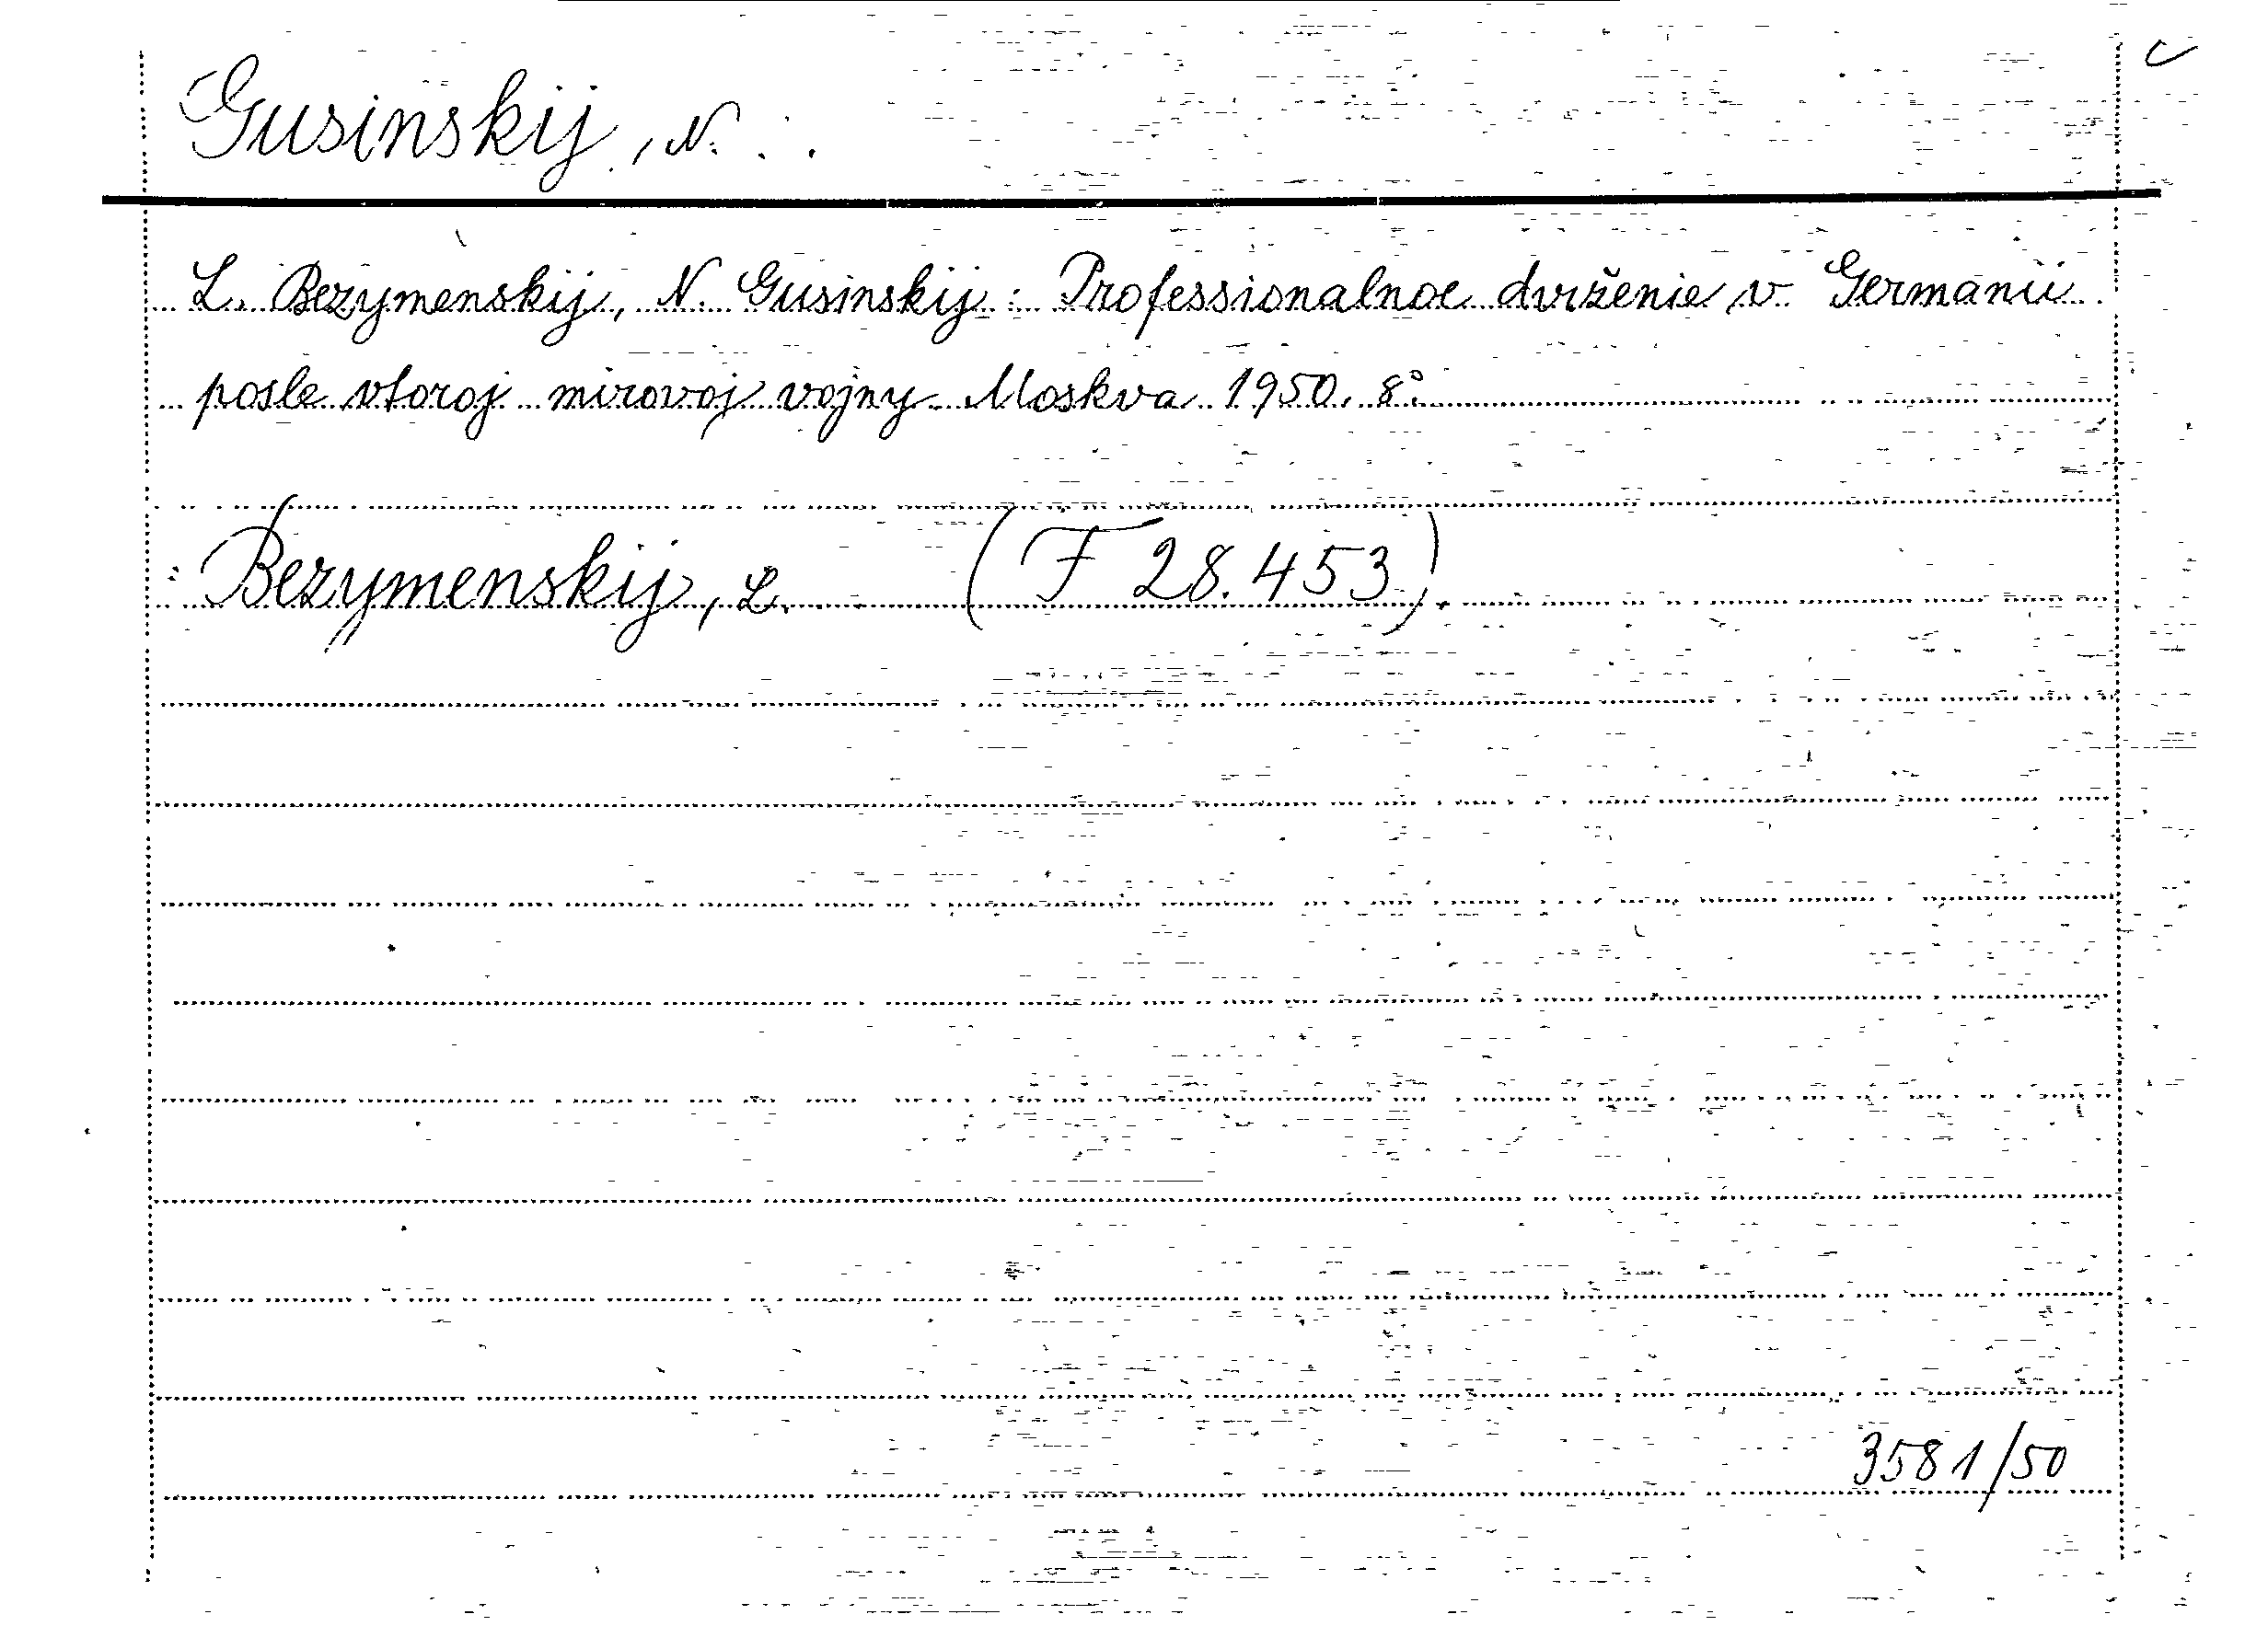 Gusinskij, N.
L. Bezymenskij, N. Gusinskij: Professionalnoe dviženie v Germanii
posle vtoroj mirovoj vojny Moskva 1950. 8°.
: Bezymenskij, L. (F 28.453).
3581/50